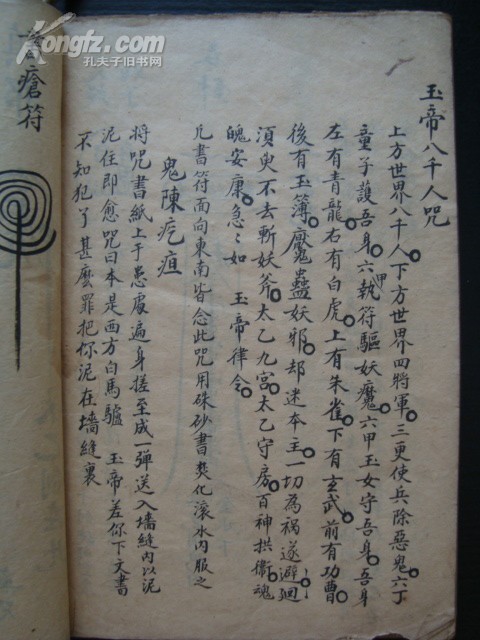 Kongfz.com
孔夫子旧书网
玉帝八千人咒
上方世界八千人下方世界四將軍三更使兵除惡鬼六丁
童子護吾身六甲執符驅妖魔六甲玉女守吾身吾身
左有青龍右有白虎上有朱雀下有玄武前有功曹
後有玉簿魘魅蠱妖邪却迷本主一切為祸遂避廻
須臾不去斬妖斧太乙九宫太乙守房百神拱衛魂
魄安康急〻如 玉帝律令
凡書符面向東南皆念此咒用硃砂書焚化滾水内服之
鬼陳疙疸
將咒書紙上于患處遍身搓至成一彈送入墻縫内以泥
泥住即愈咒曰本是西方白馬驢 玉帝差你下文書
不知犯了甚麽罪把你泥在墻縫裏
瘡符